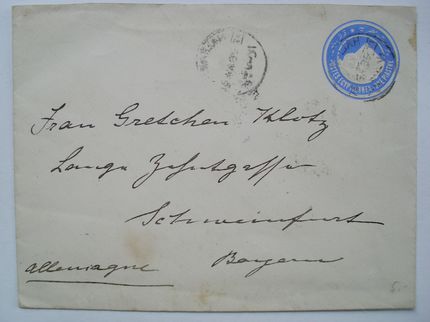 POSTES EGYPTIENNES
UNE PIASTRE
Frau Gretchen Klotz
Lange Zehntgasse
Schweinfurt
Bayern
Allemagne